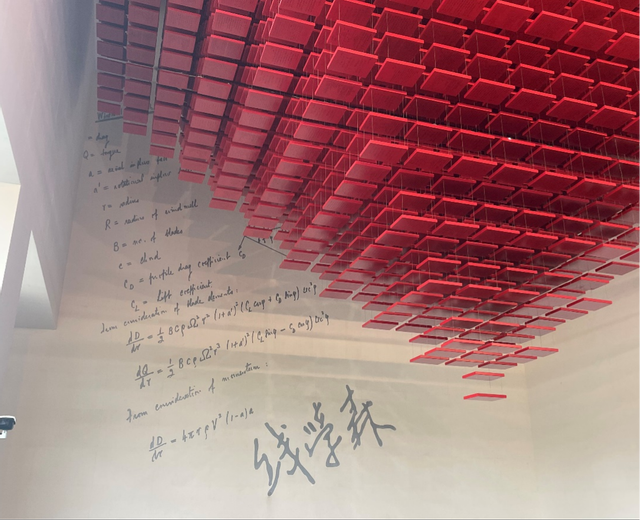 = drag
Q = torque
a = axial inflow
a' = rotational inflow
r = radius
R = radius of windmill
B = no. of blades
c = chord
C_D = profile drag coefficient
C_D
C_L = lift coefficient
From consideration of blade elements:
dD/dr = 1/2 B c ρ Ω² r² (1+a')² (C_L cos φ + C_D sin φ) sec² φ
dQ/dr = 1/2 B c ρ Ω² r³ (1+a')² (C_L sin φ - C_D cos φ) sec² φ
From consideration of momentum:
dD/dr = 4π r ρ V² (1-a) a
钱学森